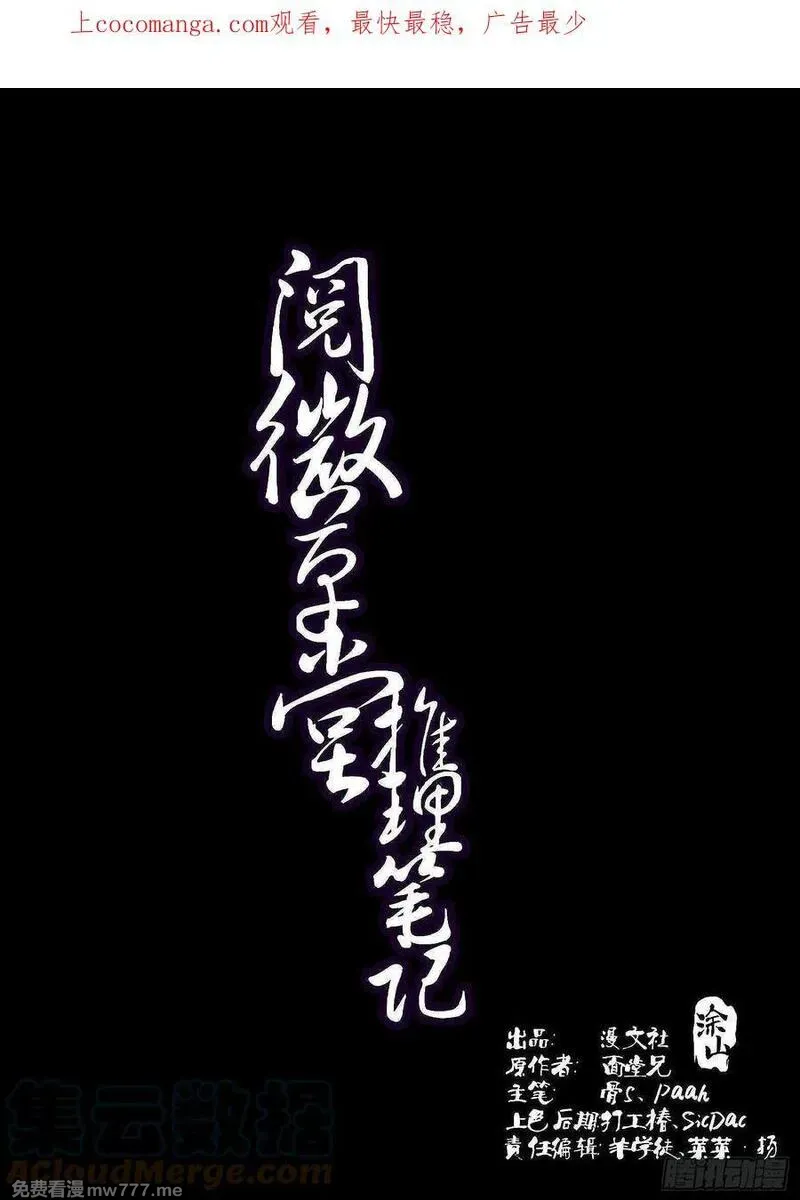 上cocomanga.com观看，最快最稳，广告最少
阅微草堂
推理笔记
涂山
出品: 漫文社
原作者: 面堂兄
主笔: 骨s、paah
上色后期:打工椿、SicDac
責任编辑:羊学徒、菜菜·扬
集云数据
iCloudMerge.com
腾讯动漫
免费看漫mw777.me